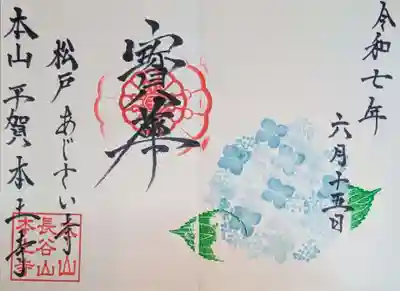 令和七年
六月十五日
寶華
松戸 あじさい寺
本山 平賀 本土寺
本山
長谷山
本土寺